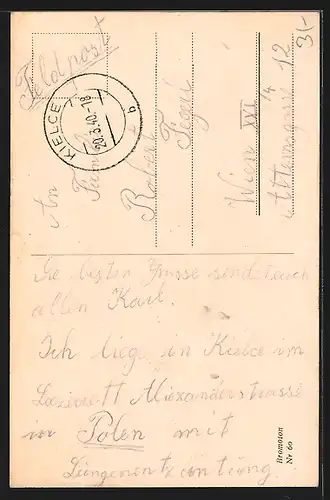 Feldpost
3/-
KIELCE
20.3.40.-18
b
An
Familie
Robert
Wien XVI
12
Die besten Grüsse sendet euch
allen Karl.
Ich liege in Kielce im
Lazarett Alexanderstrasse
in Polen mit
Lungenentzüntung
Bromoton
Nr 60